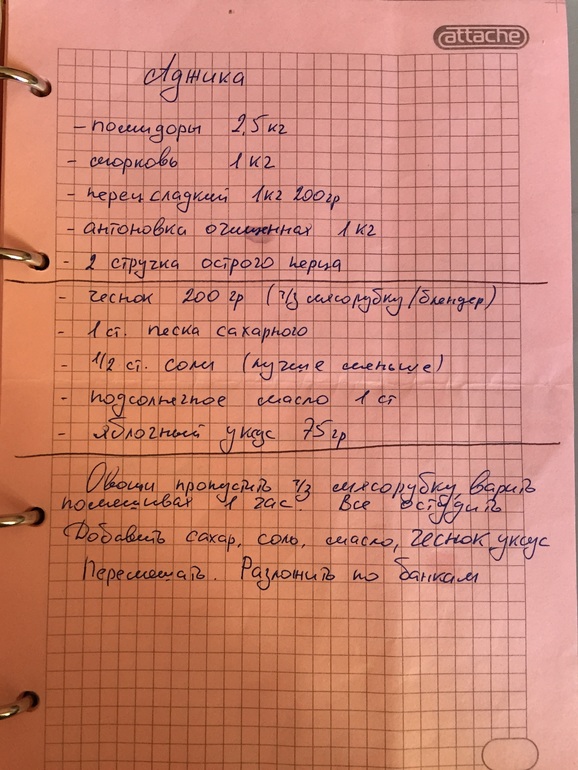 attache
Аджика
- помидоры 2,5 кг
- морковь 1 кг
- перец сладкий 1кг 200гр
- антоновка очищенная 1 кг
- 2 стручка острого перца
- чеснок 200 гр (ч/з мясорубку/блендер)
- 1 ст. песка сахарного
- 1/2 ст. соли (лучше меньше)
- подсолнечное масло 1 ст
- яблочный уксус 75гр
Овощи пропустить ч/з мясорубку, варить
помешивая 1 час. Все остудить
Добавить сахар, соль, масло, чеснок уксус
Перемешать. Разложить по банкам